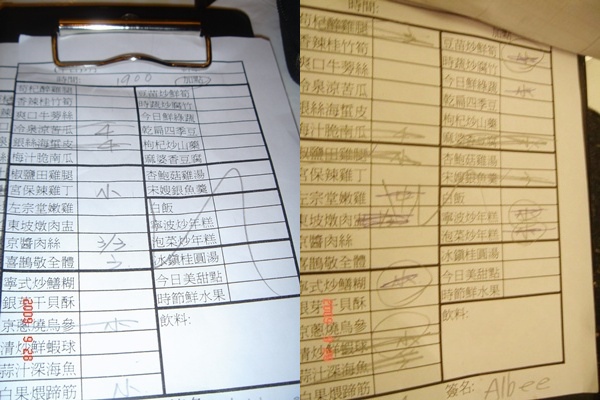 時間: 1900 (加點)
枸杞醉雞腿 豆苗炒鮮筍
香辣桂竹筍 時蔬炒腐竹
爽口牛蒡絲 今日鮮綠蔬
冷泉涼苦瓜 乾扁四季豆
銀絲海蜇皮 枸杞炒山藥
梅汁脆南瓜 麻婆香豆腐
椒鹽田雞腿 杏鮑菇雞湯
宮保辣雞丁 小 宋嫂銀魚羹
左宗堂嫩雞 白飯
東坡燉肉盅 寧波炒年糕
京醬肉絲 泡菜炒年糕
喜鵲敬全體 冰鎮桂圓湯
寧式炒鱔糊 今日美甜點
銀芽干貝酥 時節鮮水果
京蔥燒烏參 小 飲料:
清炒鮮蝦球
蒜汁深海魚
白果煨蹄筋 小
2009 9 28
時間:
枸杞醉雞腿 豆苗炒鮮筍
香辣桂竹筍 時蔬炒腐竹
爽口牛蒡絲 今日鮮綠蔬
冷泉涼苦瓜 乾扁四季豆
銀絲海蜇皮 枸杞炒山藥
梅汁脆南瓜 麻婆香豆腐
椒鹽田雞腿 杏鮑菇雞湯
宮保辣雞丁 宋嫂銀魚羹
左宗堂嫩雞 白飯
東坡燉肉盅 寧波炒年糕
京醬肉絲 泡菜炒年糕
喜鵲敬全體 冰鎮桂圓湯
寧式炒鱔糊 今日美甜點
銀芽干貝酥 時節鮮水果
京蔥燒烏參 飲料:
清炒鮮蝦球
蒜汁深海魚
白果煨蹄筋 簽名: Albee